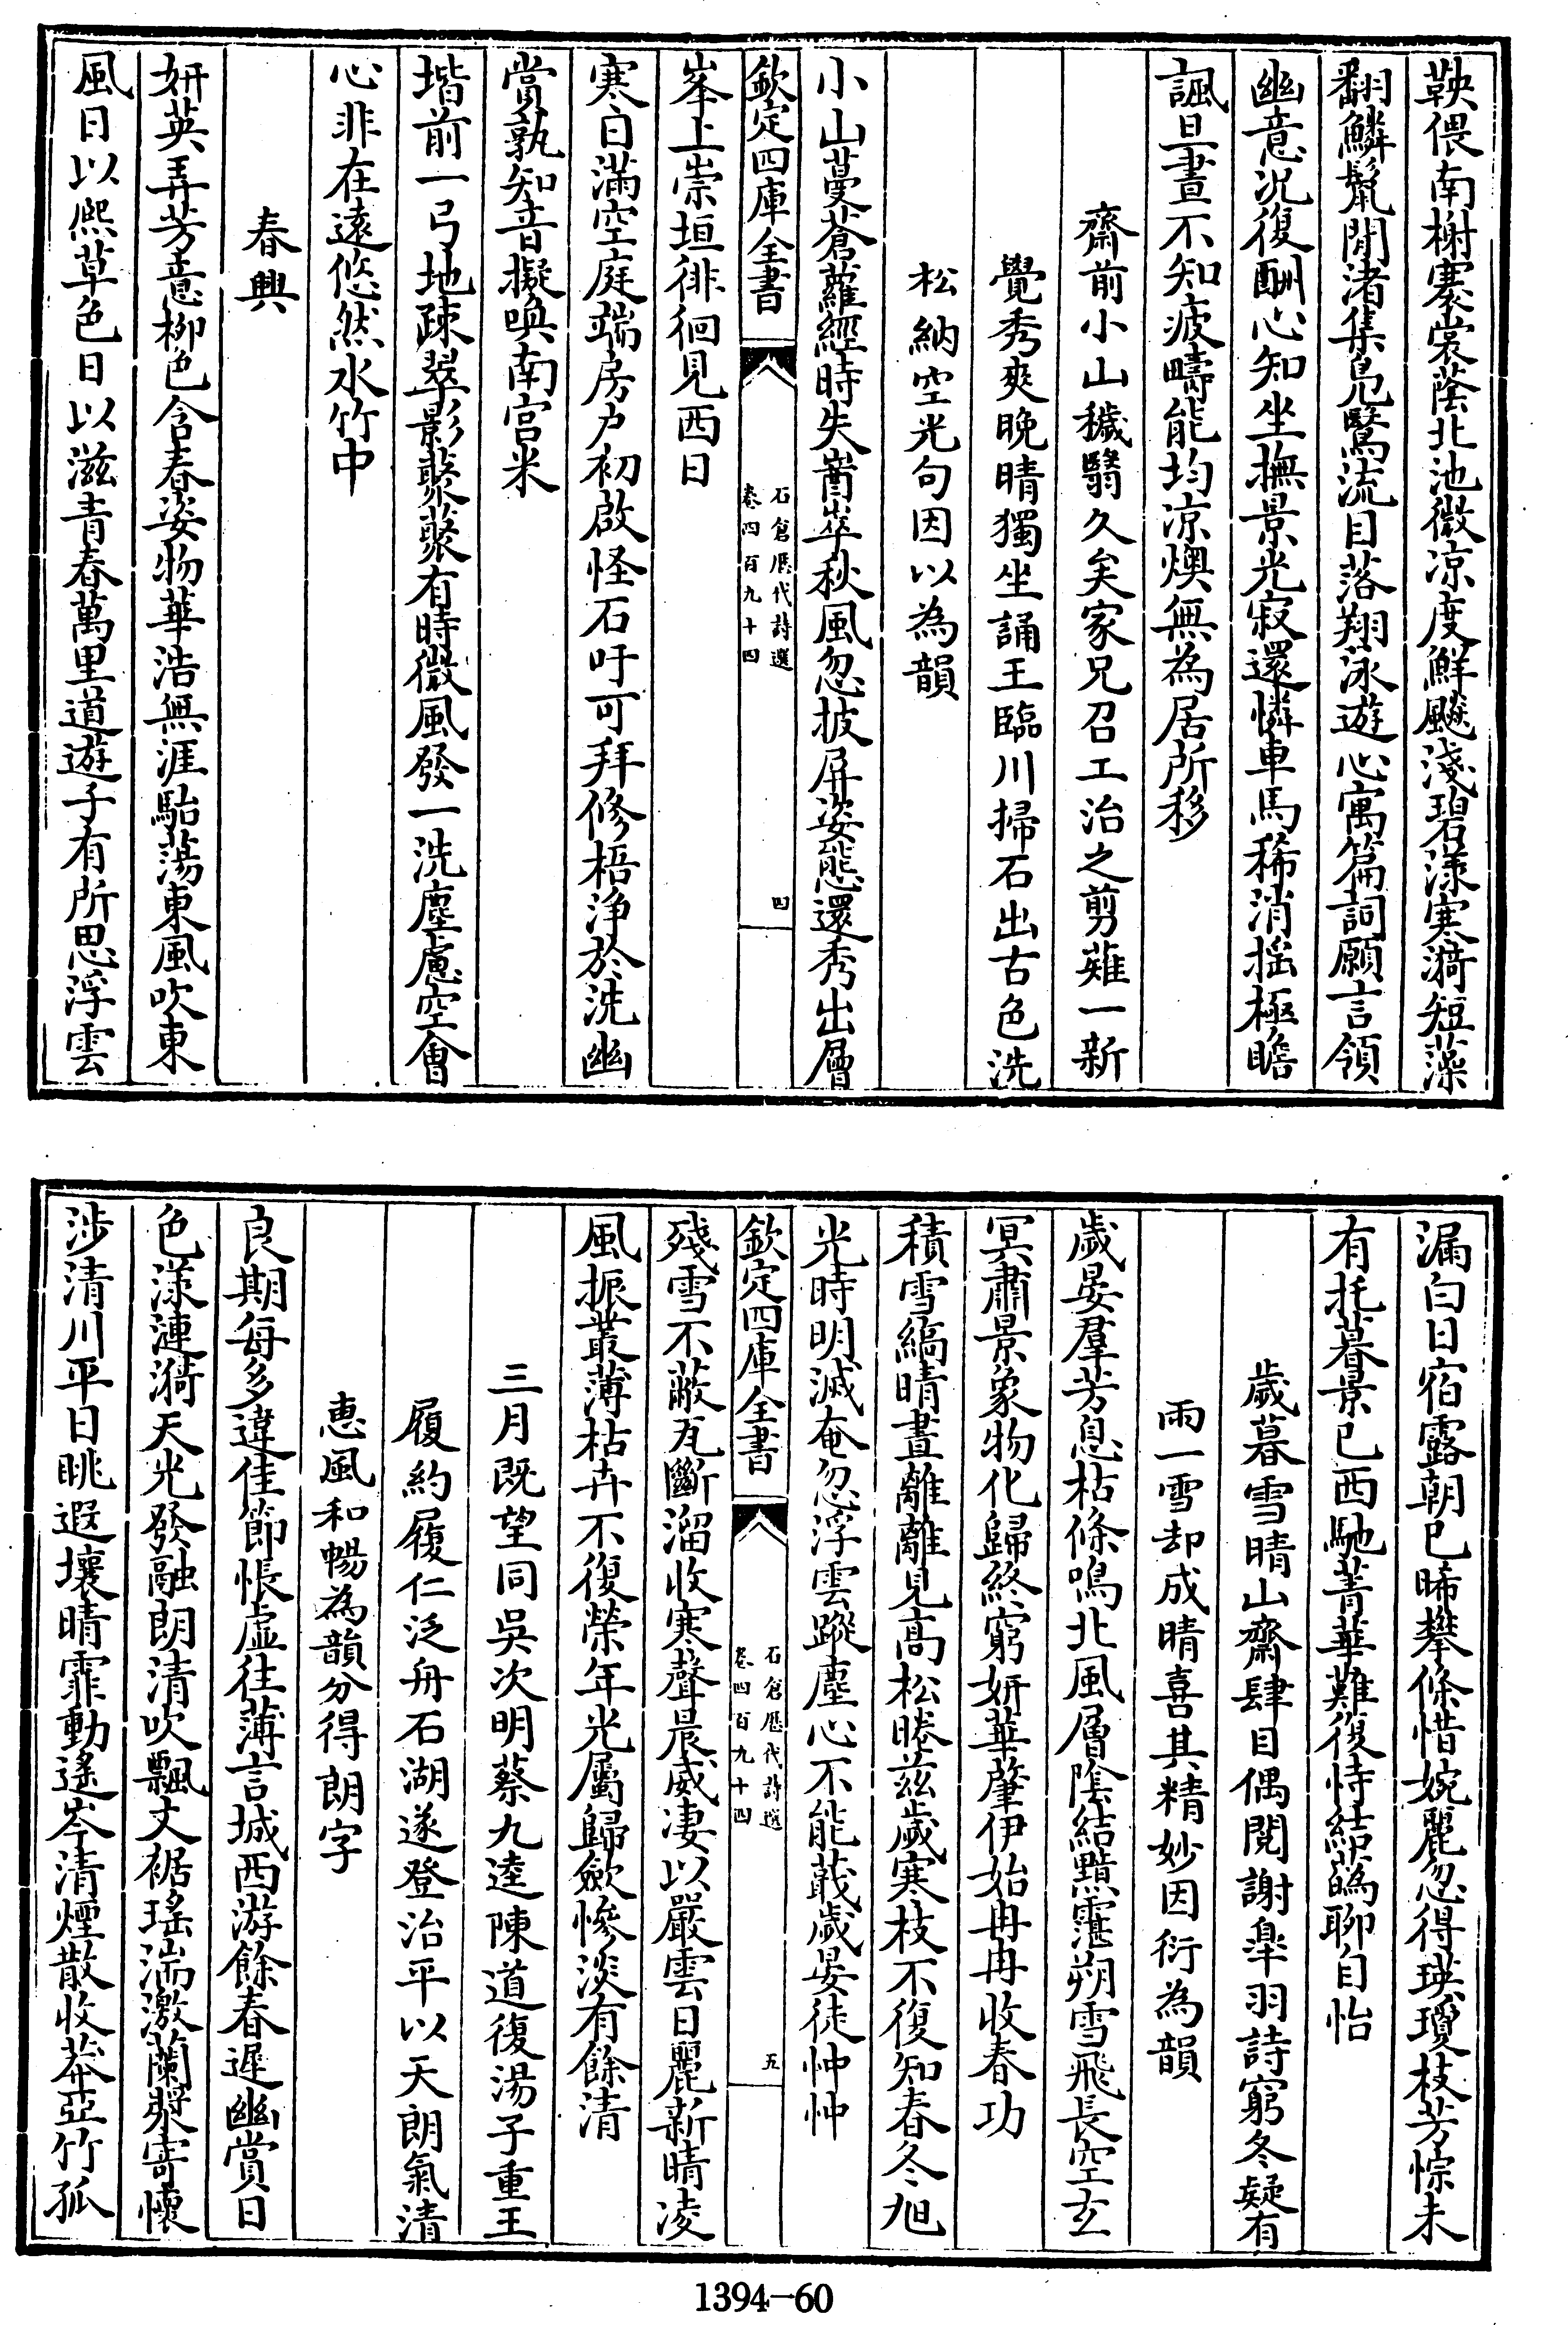 鞅偎南榭褰裳蔭北池微凉度鮮飈淺碧漾寒漪短藻
翻鱗鬛閒渚集鳧鷖流目落翔泳遊心寓篇詞願言領
幽意況復酬心知坐撫景光寂還憐車馬稀消揺極瞻
諷旦晝不知疲疇能均凉燠無為居所移
齋前小山穢翳久矣家兄召工治之剪薙一新
覺秀爽晚晴獨坐誦王臨川掃石出古色洗
松納空光句因以為韻
小山蔓蒼蘿經時失崷崒秋風忽披屏姿態還秀出層
欽定四庫全書
石倉歷代詩選
卷四百九十四
四
峯上崇垣徘徊見西日
寒白滿空庭端房户初啟怪石吁可拜修梧浄於洗幽
賞孰知音擬喚南宫米
堦前一弓地疎翠影藂藂有時微風發一洗塵慮空會
心非在遠悠然水竹中
春興
妍英弄芳意柳色含春姿物華浩無涯駘蕩東風吹東
風日以熙草色日以滋青春萬里道遊子有所思浮雲
漏白日宿露朝已晞攀條惜婉麗忽得瑛瓊枝芳悰未
有托暮景已西馳菁華難復恃結芻聊自怡
歲暮雪晴山齋肆目偶閲謝皐羽詩窮冬疑有
雨一雪却成晴喜其精妙因衍為韻
歲晏羣芳息枯條鳴北風層陰結黮霮朔雪飛長空玄
冥肅景象物化歸終窮妍華肇伊始冉冉收春功
積雪縞晴晝離離見高松睠兹歲寒枝不復知春冬旭
光時明滅奄忽浮雲蹤塵心不能蕺歲晏徒忡忡
欽定四庫全書
石倉歷代詩選
卷四百九十四
五
殘雪不蔽瓦斷溜收寒聲晨威凄以嚴雲日麗新晴凌
風振叢薄枯卉不復榮年光屬歸斂慘淡有餘清
三月既望同吳次明蔡九逵陳道復湯子重王
履約履仁泛舟石湖遂登治平以天朗氣清
恵風和暢為韻分得朗字
良期每多違佳節悵虚往薄言城西游餘春遲幽賞日
色漾漣漪天光發融朗清吹飄丈裾瑤湍激蘭漿寄懷
涉清川平日眺遐壤晴霏動遙岑清煙散收莽亞竹孤
1394—60